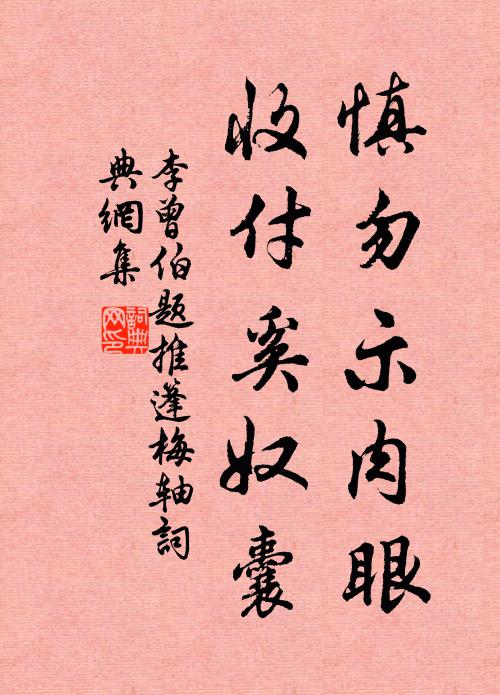 慎勿示肉眼
收付奚奴囊
李曾伯题推蓬梅轴詞
典網集
詞典
网印